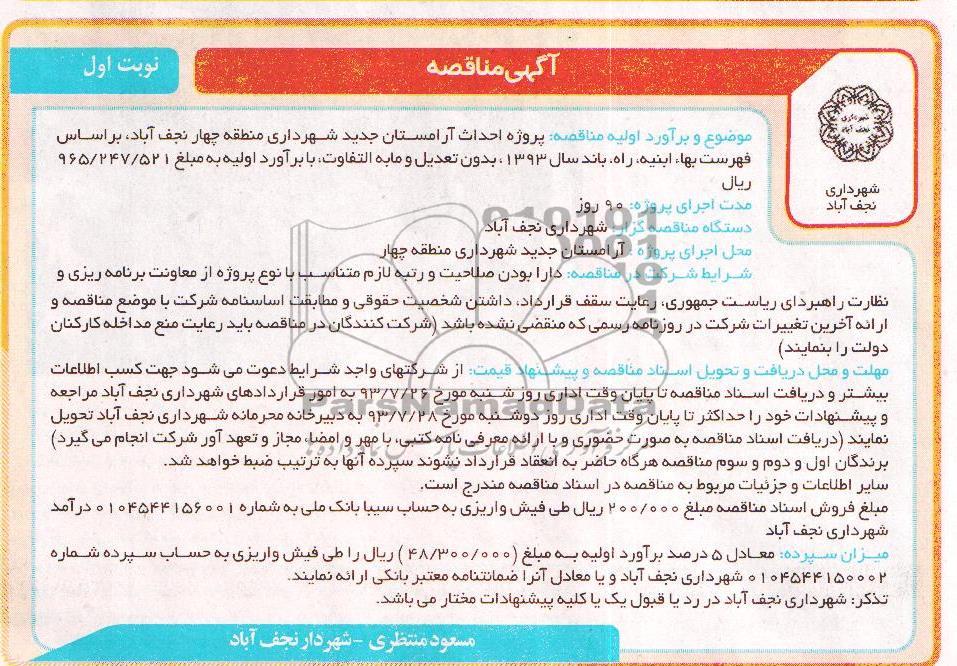 آگهی مناقصه
نوبت اول
شهرداری
نجف آباد
شهرداری
نجف آباد
موضوع و برآورد اولیه مناقصه: پروژه احداث آرامستان جدید شهرداری منطقه چهار نجف آباد، براساس
فهرست بهاء ابنیه، راه، باند سال ۱۳۹۳، بدون تعدیل و مابه التفاوت، با برآورد اولیه به مبلغ ۹۶۵/۲۴۷/۵۲۱
ریال
مدت اجرای پروژه: ۹۰ روز
دستگاه مناقصه گزار: شهرداری نجف آباد
محل اجرای پروژه: آرامستان جدید شهرداری منطقه چهار
شرایط شرکت در مناقصه: دارا بودن صلاحیت و رتبه لازم متناسب با نوع پروژه از معاونت برنامه ریزی و
نظارت راهبردای ریاست جمهوری، رعایت سقف قرارداد، داشتن شخصیت حقوقی و مطابقت اساسنامه شرکت با موضع مناقصه و
ارائه آخرین تغییرات شرکت در روزنامه رسمی که منقضی نشده باشد (شرکت کنندگان در مناقصه باید رعایت منع مداخله کارکنان
دولت را بنمایند)
مهلت و محل دریافت و تحویل اسناد مناقصه و پیشنهاد قیمت: از شرکتهای واجد شرایط دعوت می شود جهت کسب اطلاعات
بیشتر و دریافت اسناد مناقصه تا پایان وقت اداری روز شنبه مورخ ۹۳/۷/۲۶ به امور قراردادهای شهرداری نجف آباد مراجعه
و پیشنهادات خود را حداکثر تا پایان وقت اداری روز دوشنبه مورخ ۹۳/۷/۲۸ به دبیرخانه محرمانه شهرداری نجف آباد تحویل
نمایند (دریافت اسناد مناقصه به صورت حضوری و با ارائه معرفی نامه کتبی، با مهر و امضاء مجاز و تعهد آور شرکت انجام می گیرد)
برندگان اول و دوم و سوم مناقصه هرگاه حاضر به انعقاد قرارداد نشوند سپرده آنها به ترتیب ضبط خواهد شد.
سایر اطلاعات و جزئیات مربوط به مناقصه در اسناد مناقصه مندرج است.
مبلغ فروش اسناد مناقصه مبلغ ۲۰۰/۰۰۰ ریال طی فیش واریزی به حساب سیبا بانک ملی به شماره ۰۱۰۴۵۴۴۱۵۶۰۰۱ درآمد
شهرداری نجف آباد
میزان سپرده: معادل ۵ درصد برآورد اولیه به مبلغ (۴۸/۳۰۰/۰۰۰) ریال را طی فیش واریزی به حساب سپرده شماره
۰۱۰۴۵۴۴۱۵۰۰۰۲ شهرداری نجف آباد و یا معادل آنرا ضمانتنامه معتبر بانکی ارائه نمایند.
تذکر: شهرداری نجف آباد در رد یا قبول یک یا کلیه پیشنهادات مختار می باشد.
مسعود منتظری - شهردار نجف آباد
ParsNamadData